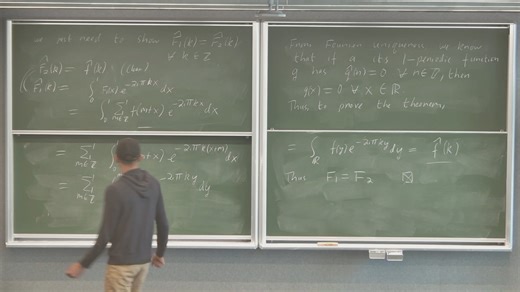 we just need to show F̂₁(k) = F̂₂(k)
∀ k ∈ ℤ
F̂₂(k) = f̂(k)
F̂₁(k) = ∫₀¹ F(x) e^{-2πikx} dx
= ∫₀¹ Σ_{m∈ℤ} f(m+x) e^{-2πikx} dx
= Σ_{m∈ℤ} ∫₀¹ f(m+x) e^{-2πik(x+m)} dx
= Σ_{m∈ℤ} e^{-2πiky} dy
From Fourier uniqueness we know
that if a cts 1-periodic function
g has ĝ(n) = 0 ∀ n ∈ ℤ, then
g(x) = 0 ∀ x ∈ ℝ
Thus to prove the theorem,
= ∫_ℝ f(y) e^{-2πiky} dy = f̂(k)
Thus F₁ = F₂ ⊠